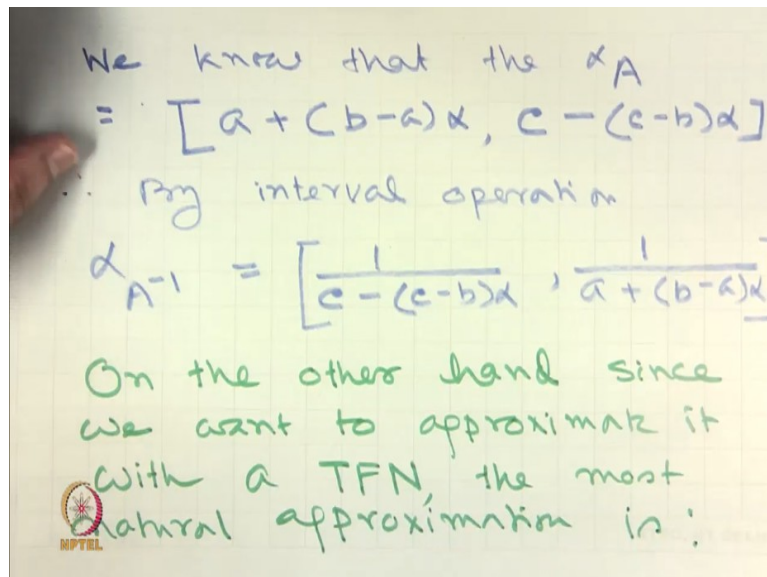 We know that the αA
= [a + (b-a)α, c - (c-b)α]
∴ By interval operation
αA-1 = [1/(c - (c-b)α), 1/(a + (b-a)α)]
On the other hand since
we want to approximate it
with a TFN, the most
natural approximation is:
NPTEL